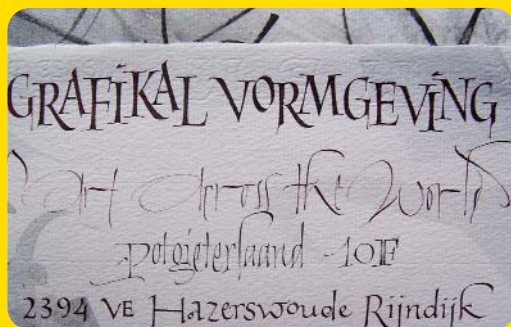 GRAFIKAL VORMGEVING
art across the World
potgieterlaand 10F
2394 VE Hazerswoude Rijndijk